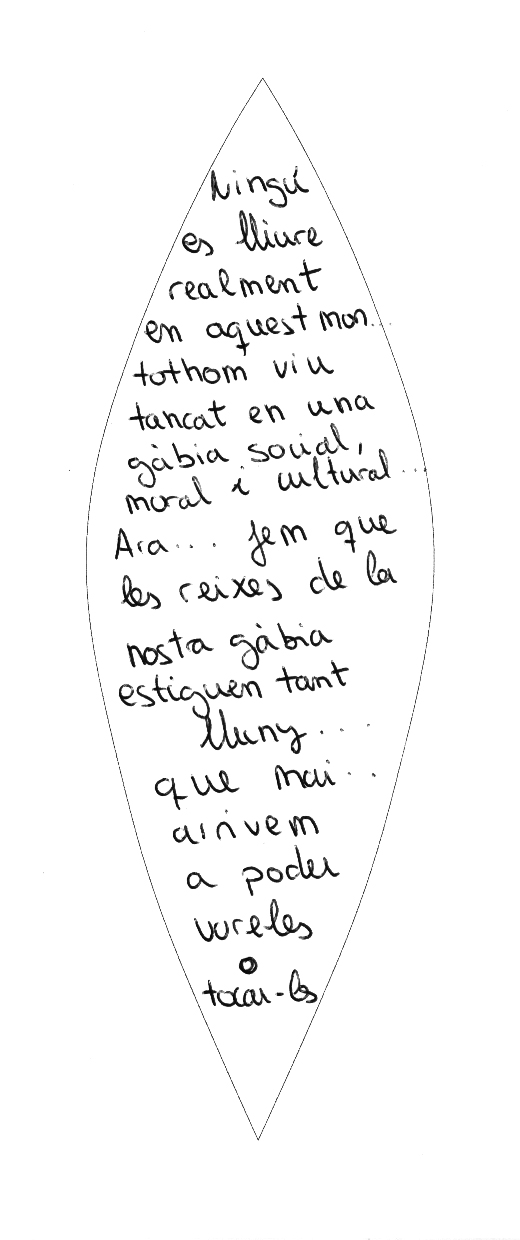 Ningú
es lliure
realment
en aquest mon...
tothom viu
tancat en una
gàbia social,
moral i cultural...
Ara... fem que
les reixes de la
nosta gàbia
estiguen tant
lluny...
que mai...
arrivem
a poder
vureles
o
tocar-les